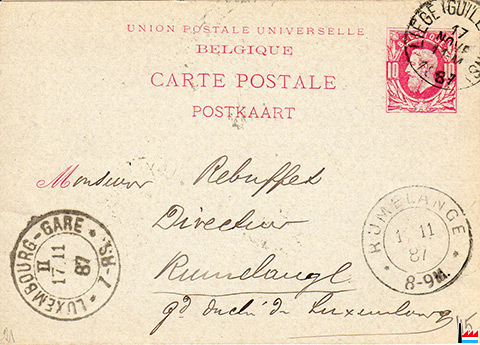 UNION POSTALE UNIVERSELLE
BELGIQUE
CARTE POSTALE
POSTKAART
LIEGE (GUILLEMINS)
17
NOVE
11 M
87
10
Monsieur Rebuffet
Directeur
Rumelange
Gd duché de Luxembourg
LUXEMBOURG-GARE * 7-8R. *
II
17 11
87
RUMELANGE
17 11
87
8-9M.